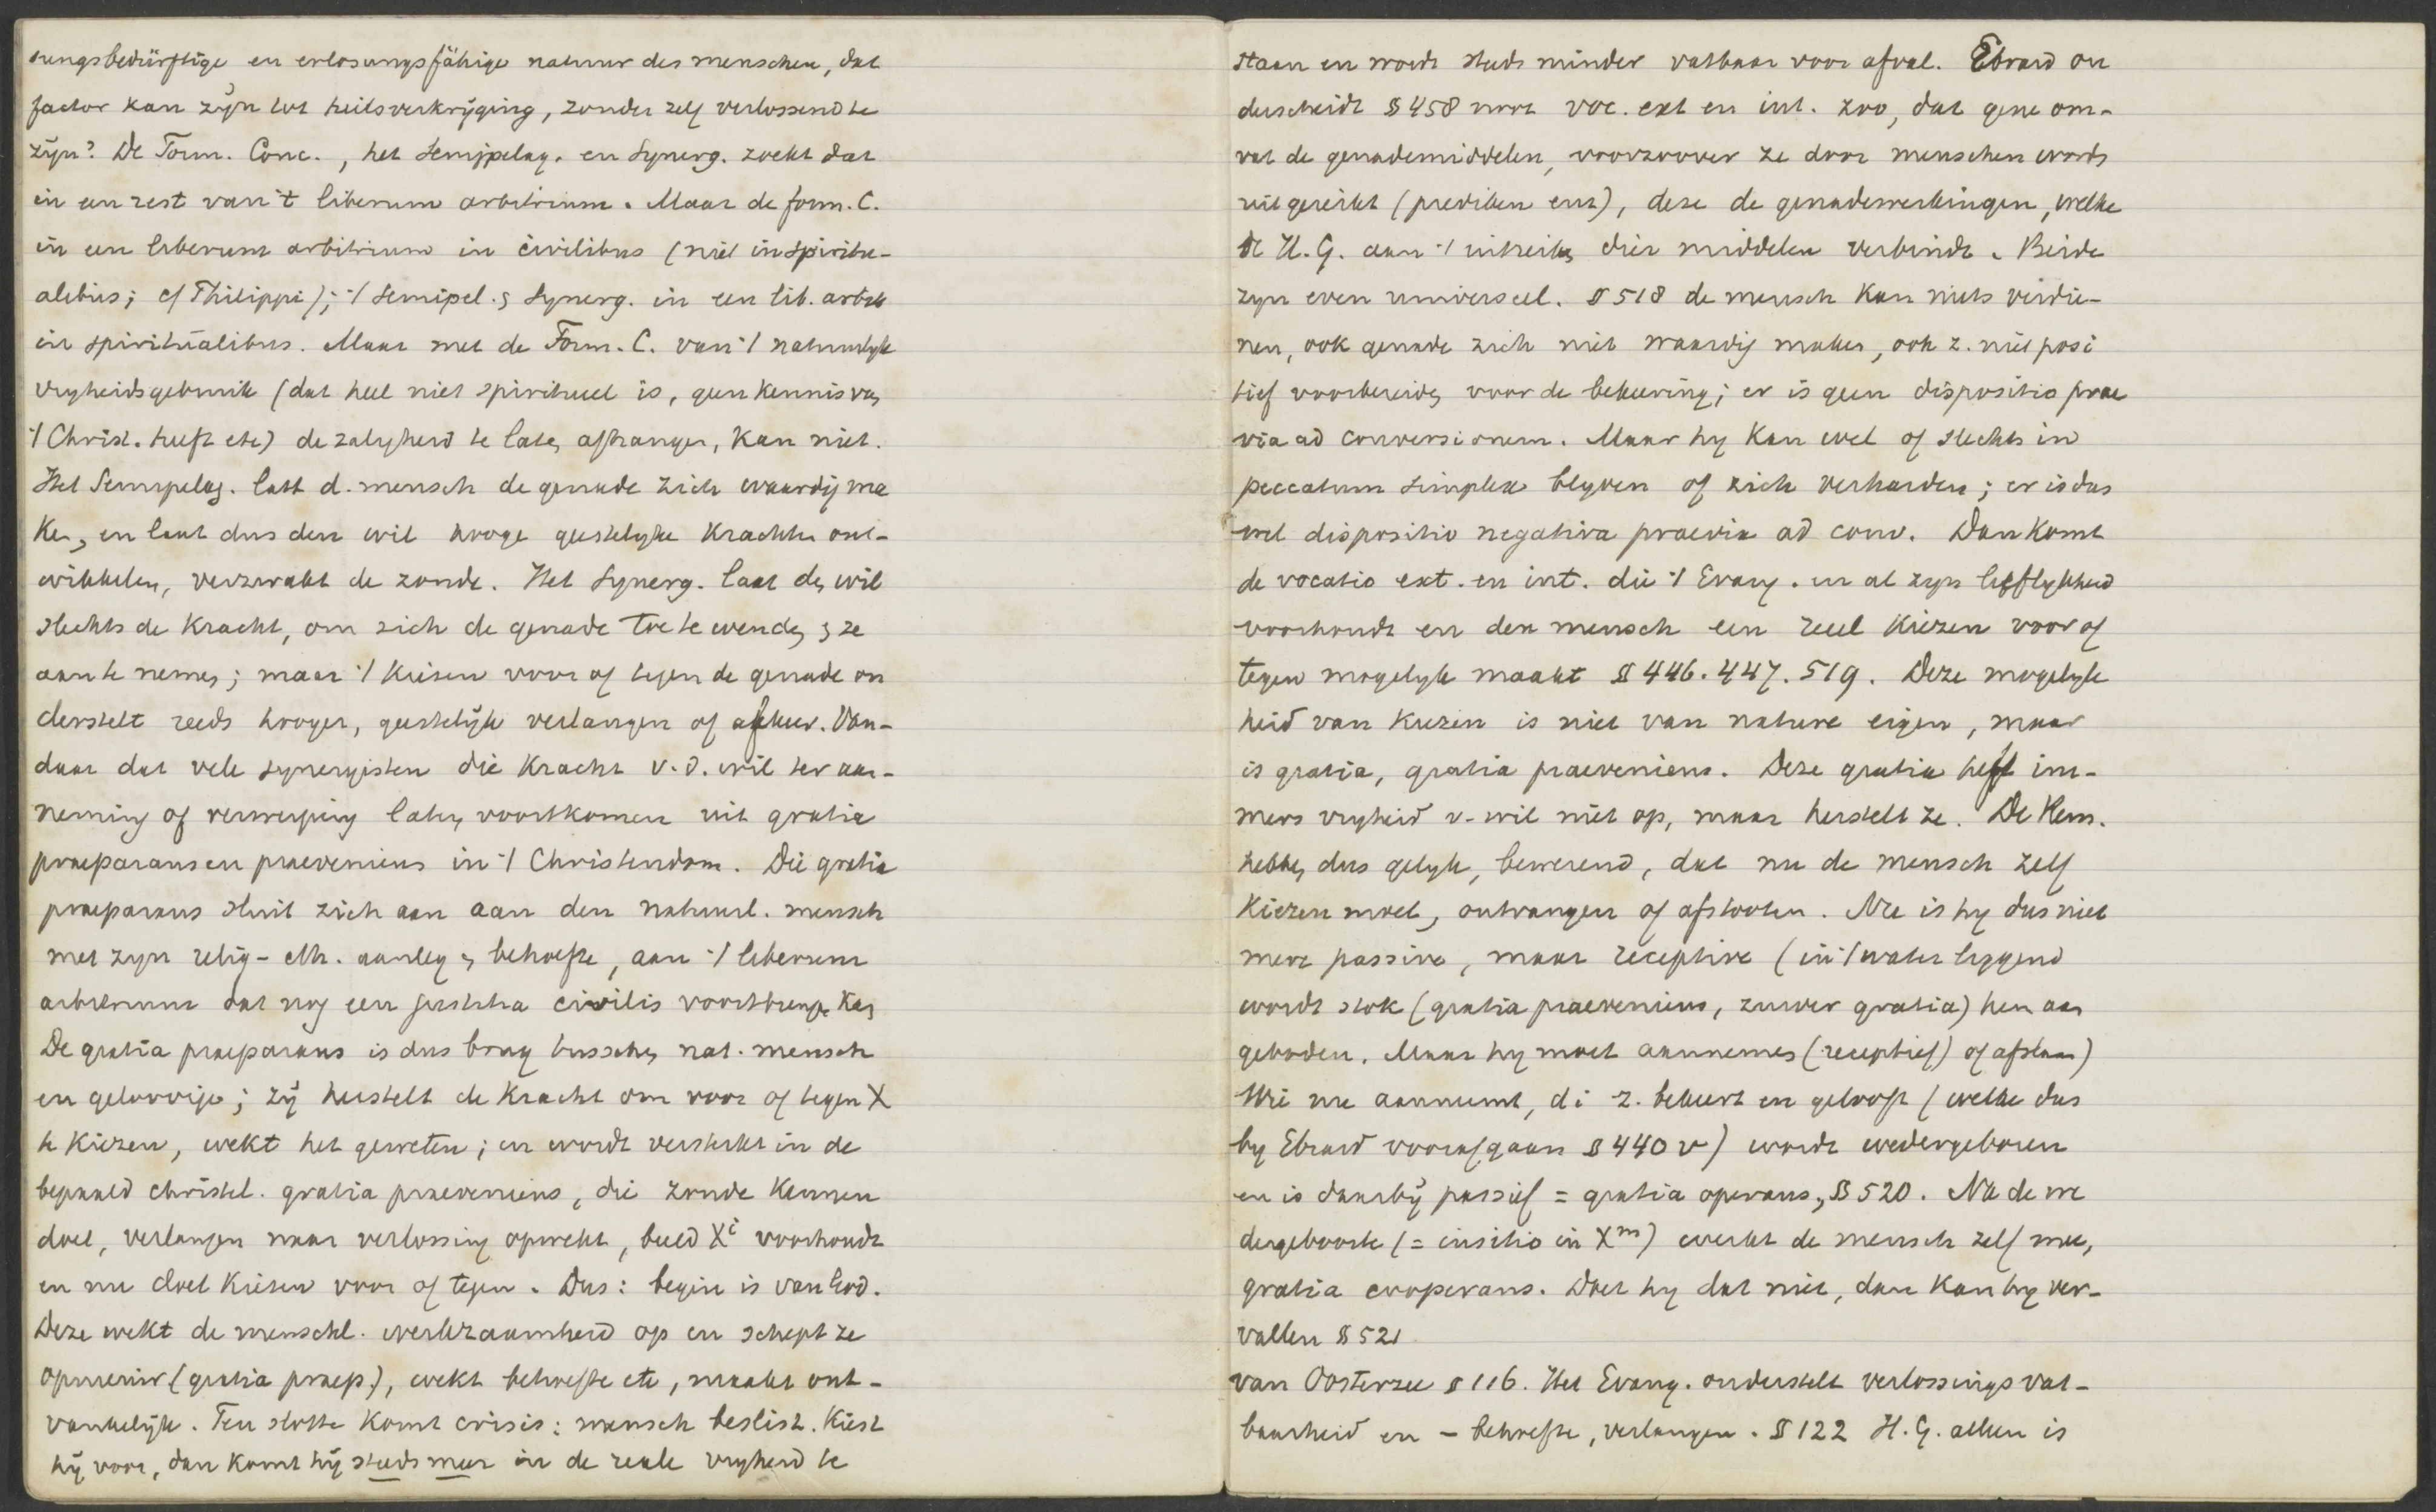 sungsbedürftige en erlosungsfähige natuur des menschen, dat
factor kan zijn tot heilsverkrijging, zonder zelf verlossend te
zijn? De Form. Conc., het Semipelag. en Synerg. zoekt dat
in een rest van 't liberum arbitrium. Maar de form. C.
in een liberum arbitrium in civilibus (niet in spiritu-
alibus; cf Philippi); 't Semipel. & Synerg. in een lib. arbitr
in spiritualibus. Maar met de Form. C. van 't natuurlyk
vryheidsgebruik (dat heel niet spiritueel is, geen kennis van
't Christ. heeft etc) de zalygheid te laten afhangen, kan niet.
Het Semipelag. laat d. mensch de genade zich waardij ma
ken, en laat dus den wil hooge geestelyke krachten ont-
wikkelen, verzwakt de zonde. Het Synerg. laat den wil
slechts de kracht, om zich de genade toe te wenden & ze
aan te nemen; maar 't kiezen voor of tegen de genade on
derstelt reeds hooger, geestelijk verlangen of afkeer. Van-
daar dat vele synergisten die kracht v. d. wil ter aan-
neming of verwerping laten voortkomen uit gratia
praeparans en praeveniens in 't Christendom. Die gratia
praeparans sluit zich aan aan den natuurl. mensch
met zyn relig-eth. aanleg en behoefte, aan 't liberum
arbitrium dat nog een justitia civilis voortbrengen kan
De gratia praeparans is dus brug tusschen nat. mensch
en geloovige; zij herstelt de kracht om voor of tegen X
te kiezen, wekt het geweten; en wordt versterkt in de
bepaald christel. gratia praeveniens, die zonde kennen
doet, verlangen naar verlossing opwekt, beeld Xi voorhoudt
en nu doet kiezen voor of tegen. Dus: begin is van God.
Deze wekt de menschl. werkzaamheid op en schept ze
opnieuw (gratia praep.), wekt behoefte etc, maakt ont-
vankelijk. Ten slotte komt crisis: mensch beslist. Kiest
hij voor, dan komt hij steeds meer in de reale vryheid te
staan en wordt steeds minder vatbaar voor afval. Ebrard on
derscheidt § 458 noot voc. ext en int. zoo, dat gene om-
vat de genademiddelen, voorzoover ze door menschen wordt
uitgereikt (prediken enz), deze de genadewerkingen, welke
de H. G. aan 't uitreiken dier middelen verbindt. Beide
zyn even universeel. § 518 de mensch kan niets verdie-
nen, ook genade zich niet waardij maken, ook z. niet posi
tief voorbereiden voor de bekeering; er is geen dispositio prae
via ad conversionem. Maar hy kan wel of slechts in
peccatum simplex blyven of zich verharden; er is dus
wel dispositio negativa praevia ad conv. Dan komt
de vocatio ext. en int. die 't Evang. in al zyn lieflykheid
voorhoudt en den mensch een reëel kiezen voor of
tegen mogelyk maakt § 446. 447. 519. Deze mogelyk
heid van kiezen is niet van nature eigen, maar
is gratia, gratia praeveniens. Deze gratia heft im-
mers vryheid v. wil niet op, maar herstelt ze. De Rem.
hebben dus gelyk, bewerend, dat nu de mensch zelf
kiezen moet, ontvangen of afstooten. Nu is hy dus niet
mere passive, maar receptive (in 't water liggend
wordt stok (gratia praeveniens, zuiver gratia) hem aan
geboden. Maar hy moet aannemen (receptief) of afslaan)
Wie nu aanneemt, d i z. bekeert en gelooft (welke dus
by Ebrard voorafgaan § 440 v) wordt wedergeboren
en is daarbij passief = gratia operans, § 520. Na de we
dergeboorte (= insitio in Xm) werkt de mensch zelf mee,
gratia cooperans. Doet hy dat niet, dan kan hy ver-
vallen § 521
van Oosterzee § 116. Het Evang. onderstelt verlossingsvat-
baarheid en - behoefte, verlangen. § 122 H. G. alleen is